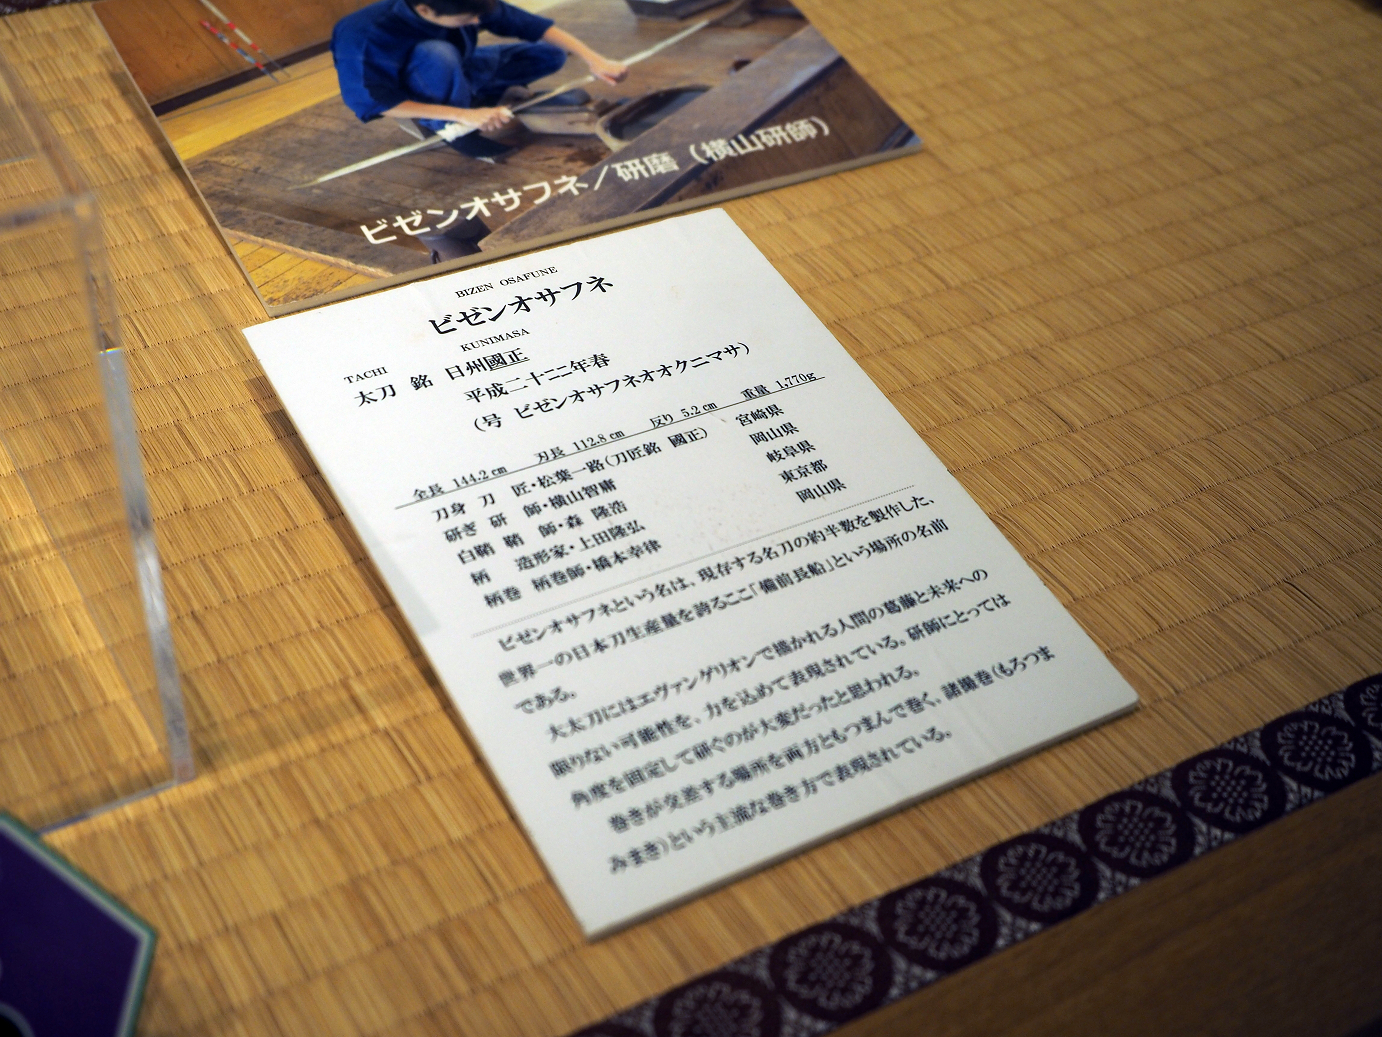 ビゼンオサフネ／研磨（横山研師）
BIZEN OSAFUNE
ビゼンオサフネ
TACHI KUNIMASA
太刀 銘 日州國正
平成二十二年春
（号 ビゼンオサフネオオクニマサ）
全長 144.2cm 刃長 112.8cm 反り 5.2cm 重量 1,770g
刀身 刀 匠・松葉一路（刀匠銘 國正） 宮崎県
研ぎ 研 師・横山智庸 岡山県
白鞘 鞘 師・森 隆浩 岐阜県
柄 造形家・上田隆弘 東京都
柄巻 柄巻師・橋本幸律 岡山県
ビゼンオサフネという名は、現存する名刀の約半数を製作した、
世界一の日本刀生産量を誇るここ「備前長船」という場所の名前
である。
大太刀にはエヴァンゲリオンで描かれる人間の葛藤と未来への
限りない可能性を、力を込めて表現されている。研師にとっては
角度を固定して研ぐのが大変だったと思われる。
巻きが交差する場所を両方ともつまんで巻く、諸撮巻（もろつま
みまき）という主流な巻き方で表現されている。